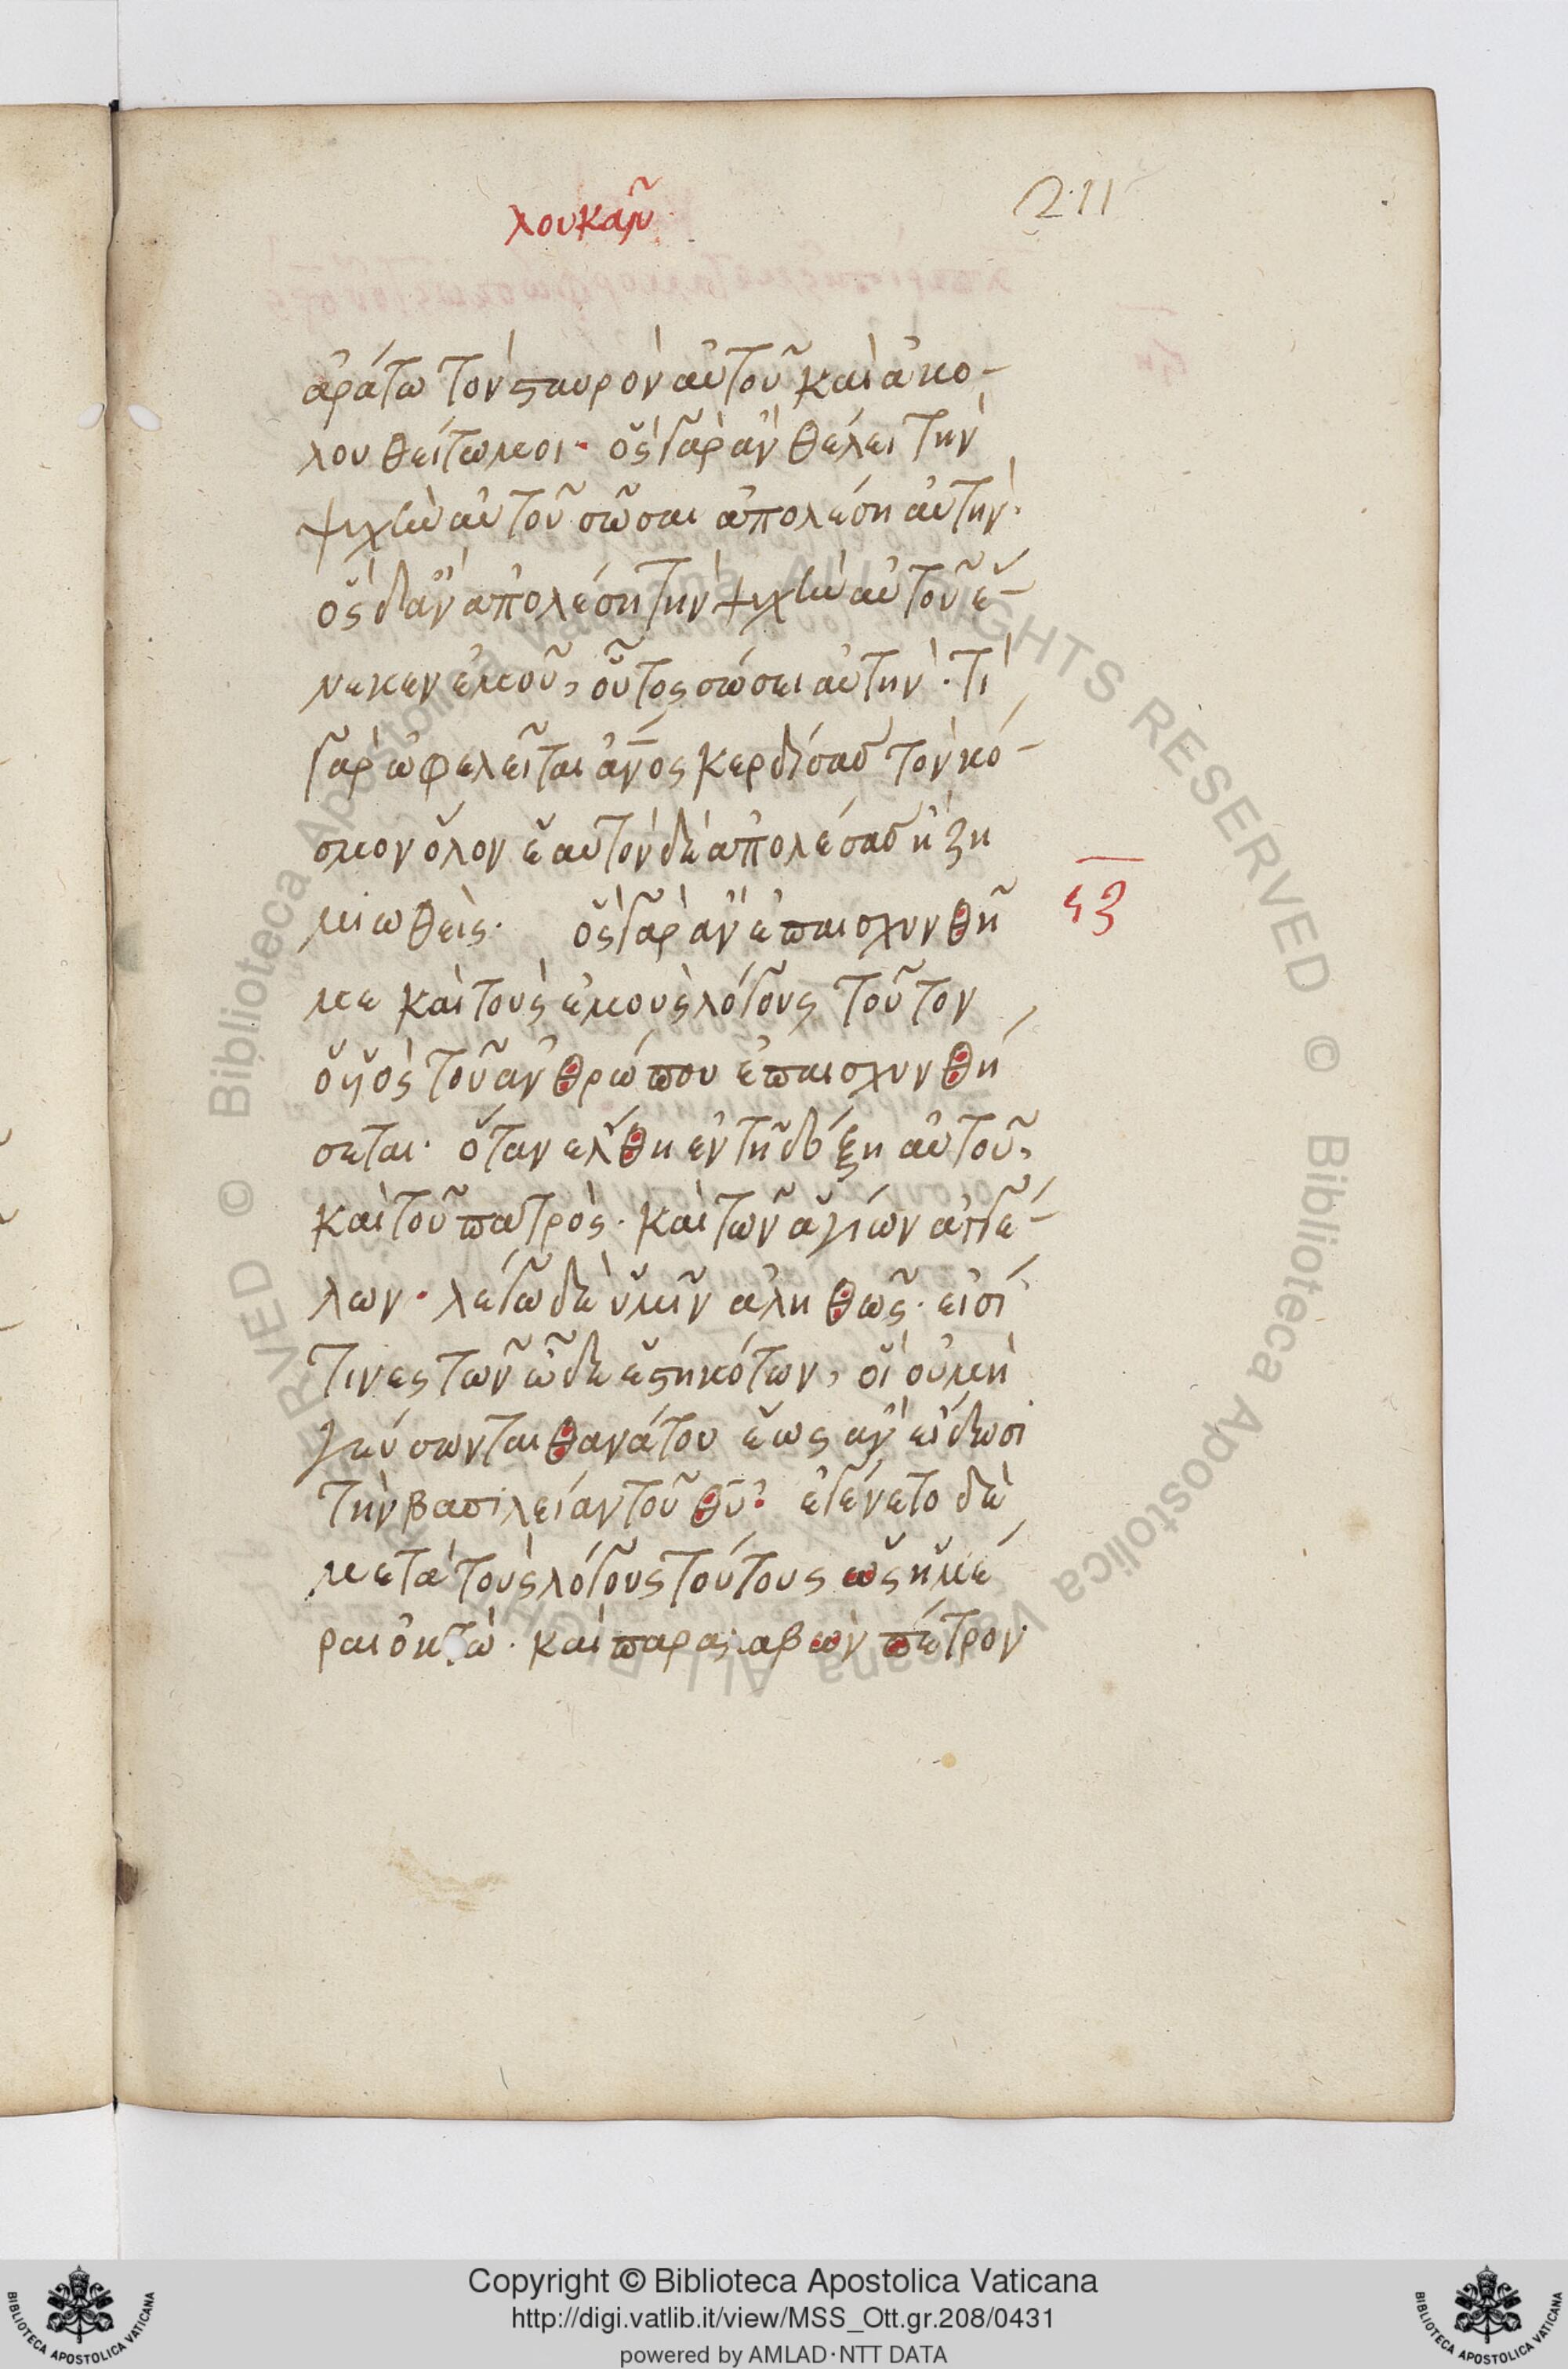 λουκᾶν
211
ἀράτω τὸν σταυρὸν αὐτοῦ καὶ ἀκο-
λουθείτω μοι· ὃς γὰρ ἂν θέλει τὴν
ψυχὴν αὐτοῦ σῶσαι ἀπολέση αὐτήν·
ὃς δ' ἂν ἀπολέση τὴν ψυχὴν αὐτοῦ ἕ-
νεκεν ἐμοῦ, οὗτος σώσει αὐτήν· τί
γὰρ ὠφελεῖται ἄνος κερδίσας τὸν κό-
σμον ὅλον ἑαυτὸν δὲ ἀπολέσας ἢ ζη
μιωθείς· ὃς γὰρ ἂν ἐπαισχυνθῆ
ϟζ
με καὶ τοὺς ἐμοὺς λόγους τοῦτον
ὁ υἱὸς τοῦ ἀνθρώπου ἐπαισχυνθή
σεται· ὅταν ἔλθη ἐν τῆ δόξη αὐτοῦ,
καὶ τοῦ πατρός· καὶ τῶν ἁγίων ἀγγέ-
λων· λέγω δὲ ὑμῖν ἀληθῶς· εἰσί
τινες τῶν ὧδε ἑστηκότων, οἳ οὐ μὴ
γεύσωνται θανάτου ἕως ἂν εἴδωσι
τὴν βασιλείαν τοῦ θῦ· ἐγένετο δὲ
μετὰ τοὺς λόγους τούτους ὡς ἡμέ
ραι ὀκτώ· καὶ παραλαβὼν πέτρον
Copyright © Biblioteca Apostolica Vaticana
http://digi.vatlib.it/view/MSS_Ott.gr.208/0431
powered by AMLAD·NTT DATA
BIBLIOTECA APOSTOLICA VATICANA
BIBLIOTECA APOSTOLICA VATICANA
© Biblioteca Apostolica Vaticana ALL RIGHTS RESERVED © Biblioteca Apostolica Vaticana ALL RIGHTS RESERVED